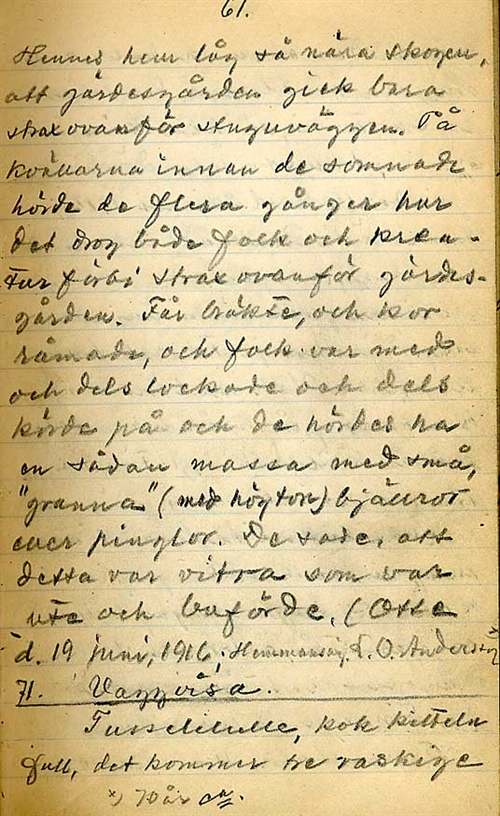 61.
Hennes hem låg så nära skogen,
att gärdesgården gick bara
strax ovanför stuguväggen. På
kvällarna innan de somnade
hörde de flera gånger hur
det drog både folk och krea-
tur förbi strax ovanför gärdes-
gården. Får bräkte, och kor
råmade, och folk var med
och dels lockade och dels
körde på och de hördes ha
en sådan massa med små,
"granna" (med hög ton) bjällror
eller pinglor. De sade, att
detta var vitra som var
ute och buförde. (Otte
d. 19 juni, 1916, Hemmansäg. L. O. Andersson x)
71. Vaggvisa.
Tusselilulle, kok kitteln
full, det kommer tre vaskige
x) 70 år